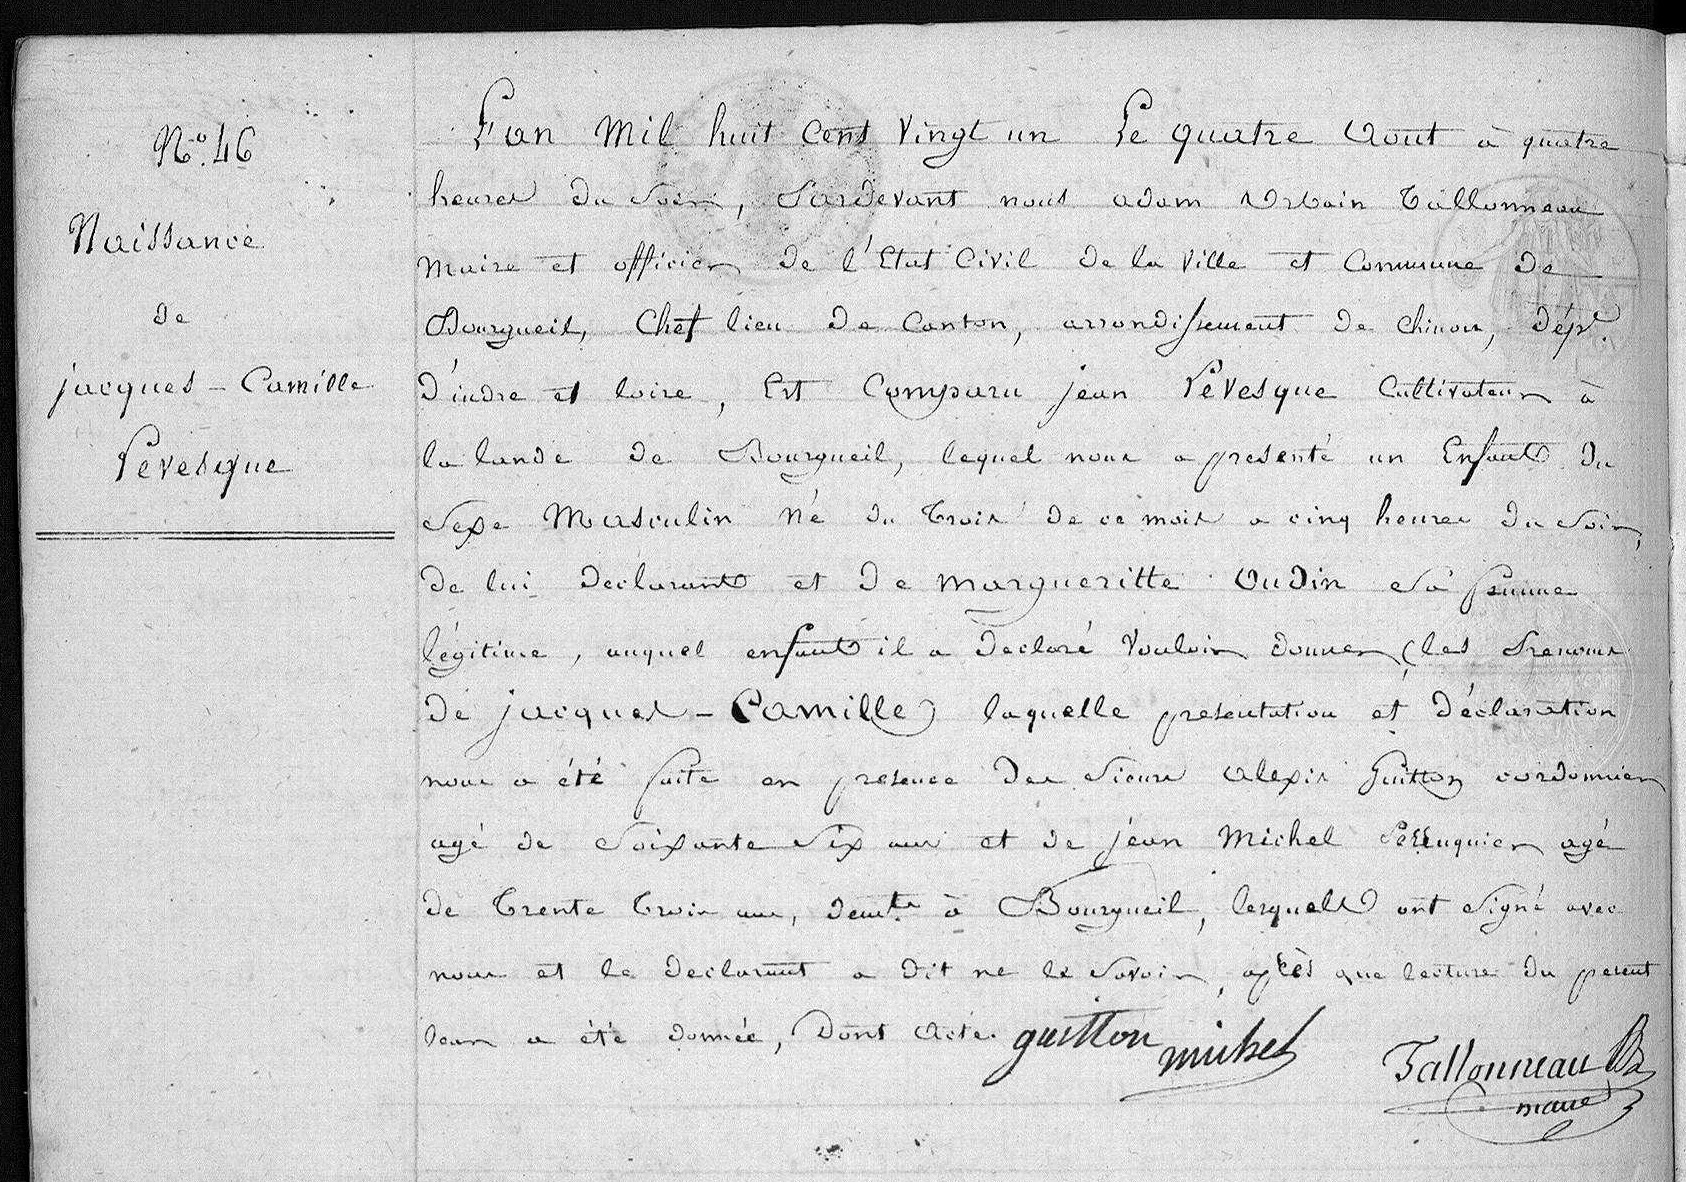 N.º 46
Naissance
de
jacques - Camille
Levesque
L'an Mil huit Cent Vingt un Le quatre Aout à quatre
heures du Soir, Pardevant nous adam Urbain Tallonneau
Maire et officier de l'Etat Civil de la Ville et Commune de
Bourgueil, Chef lieu de Canton, arrondissement de Chinon, dépt.
d'indre et loire, Est Comparu jean Levesque Cultivateur à
la lande de Bourgueil, lequel nous a presenté un Enfant du
Sexe Masculin né du Trois de ce mois a cinq heures du Soir,
de lui déclarant et de margueritte Oudin Sa femme
légitime, auquel enfant il a declaré Vouloir donner (les Prenoms
de jacques - Camille) laquelle presentation et déclaration
nous a été faite en presence des Sieurs Alexis Guitton cordonnier
agé de Soixante Six ans et de jean Michel Perruquier agé
de Trente Trois ans, demts. à Bourgueil, lesquels ont Signé avec
nous et le declarant a dit ne le Savoir, après que lecture du present
leur a été donnée, Dont Acte. guitton
michel
Tallonneau
maire